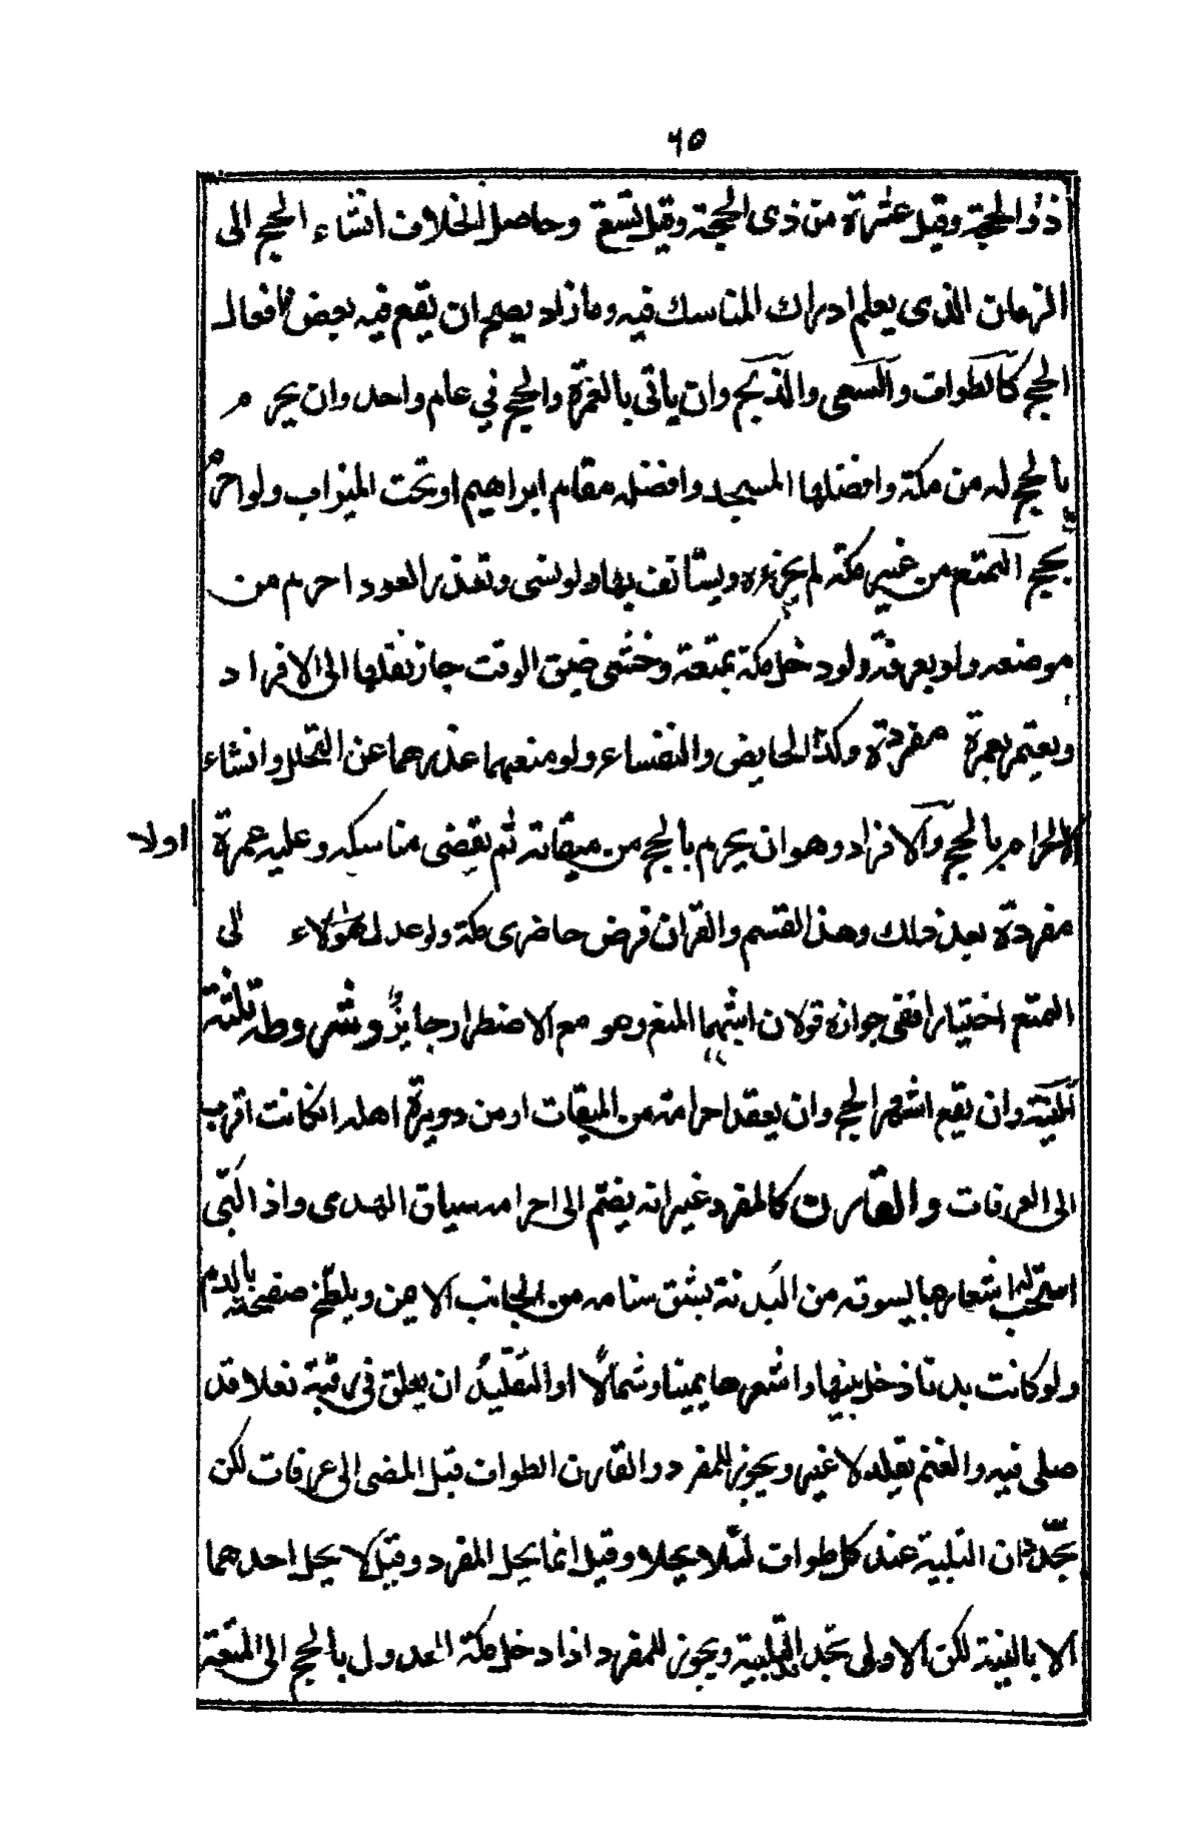 ٦٥
ذو الحجة وقيل عشرة من ذى الحجة وقيل تسع وحاصل الخلاف انشاء الحج الى
الزمان الذى يعلم ادراك المناسك فيه وما زاد يصح ان يقع فيه بعض افعال
الحج كالطواف والسعى والذبح وان ياتى بالعمرة والحج في عام واحد وان يحرم
بالحج له من مكة وافضلها المسجد وافضله مقام ابراهيم او تحت الميزاب ولو احرم
بحج التمتع من غير مكة لم يجزءه ويستأنف بها ولو نسى وتعذر العود احرم من
موضعه ولو بعرفة ولو دخل مكة بمتعة وخشى ضيق الوقت جاز نقلها الى الافراد
ويعتمر بعمرة مفردة وكذا الحايض والنفساء ولو منعهما عذرهما عن التحلل وانشاء
الاحرام بالحج والافراد وهو ان يحرم بالحج من ميقاته ثم يقضى مناسكه وعليه عمرة
اولا
مفردة بعد ذلك وهذا القسم والقران فرض حاضرى مكة ولو عدل هؤلاء الى
التمتع اختيارا ففى جوازه قولان اشبههما المنع وهو مع الاضطرار جايز وشروطه ثلثة
النية وان يقع اشهر الحج وان يعقد احرامه من الميقات او من دويرة اهله انكانت اقرب
الى العرفات والقارن كالمفرد غير انه يضم الى احرامه سياق الهدى واذا لبى
استحب له اشعارها يسوقه من البدنة بشق سنامه من الجانب الايمن ويلطخ صفحته بالدم
ولو كانت بدنا دخل بينها واشعرها يمينا وشمالا او التقليد ان يعلق في رقبته نعلا قد
صلى فيه والغنم تقلد لا غير ويجوز للمفرد والقارن الطواف قبل المضى الى عرفات لكن
يجددان التلبية عند كل طواف لئلا يحلا وقيل انما يحل المفرد وقيل لا يحل احدهما
الا بالنية لكن الاولى تجديد التلبية ويجوز للمفرد اذا دخل مكة العدول بالحج الى المتعة